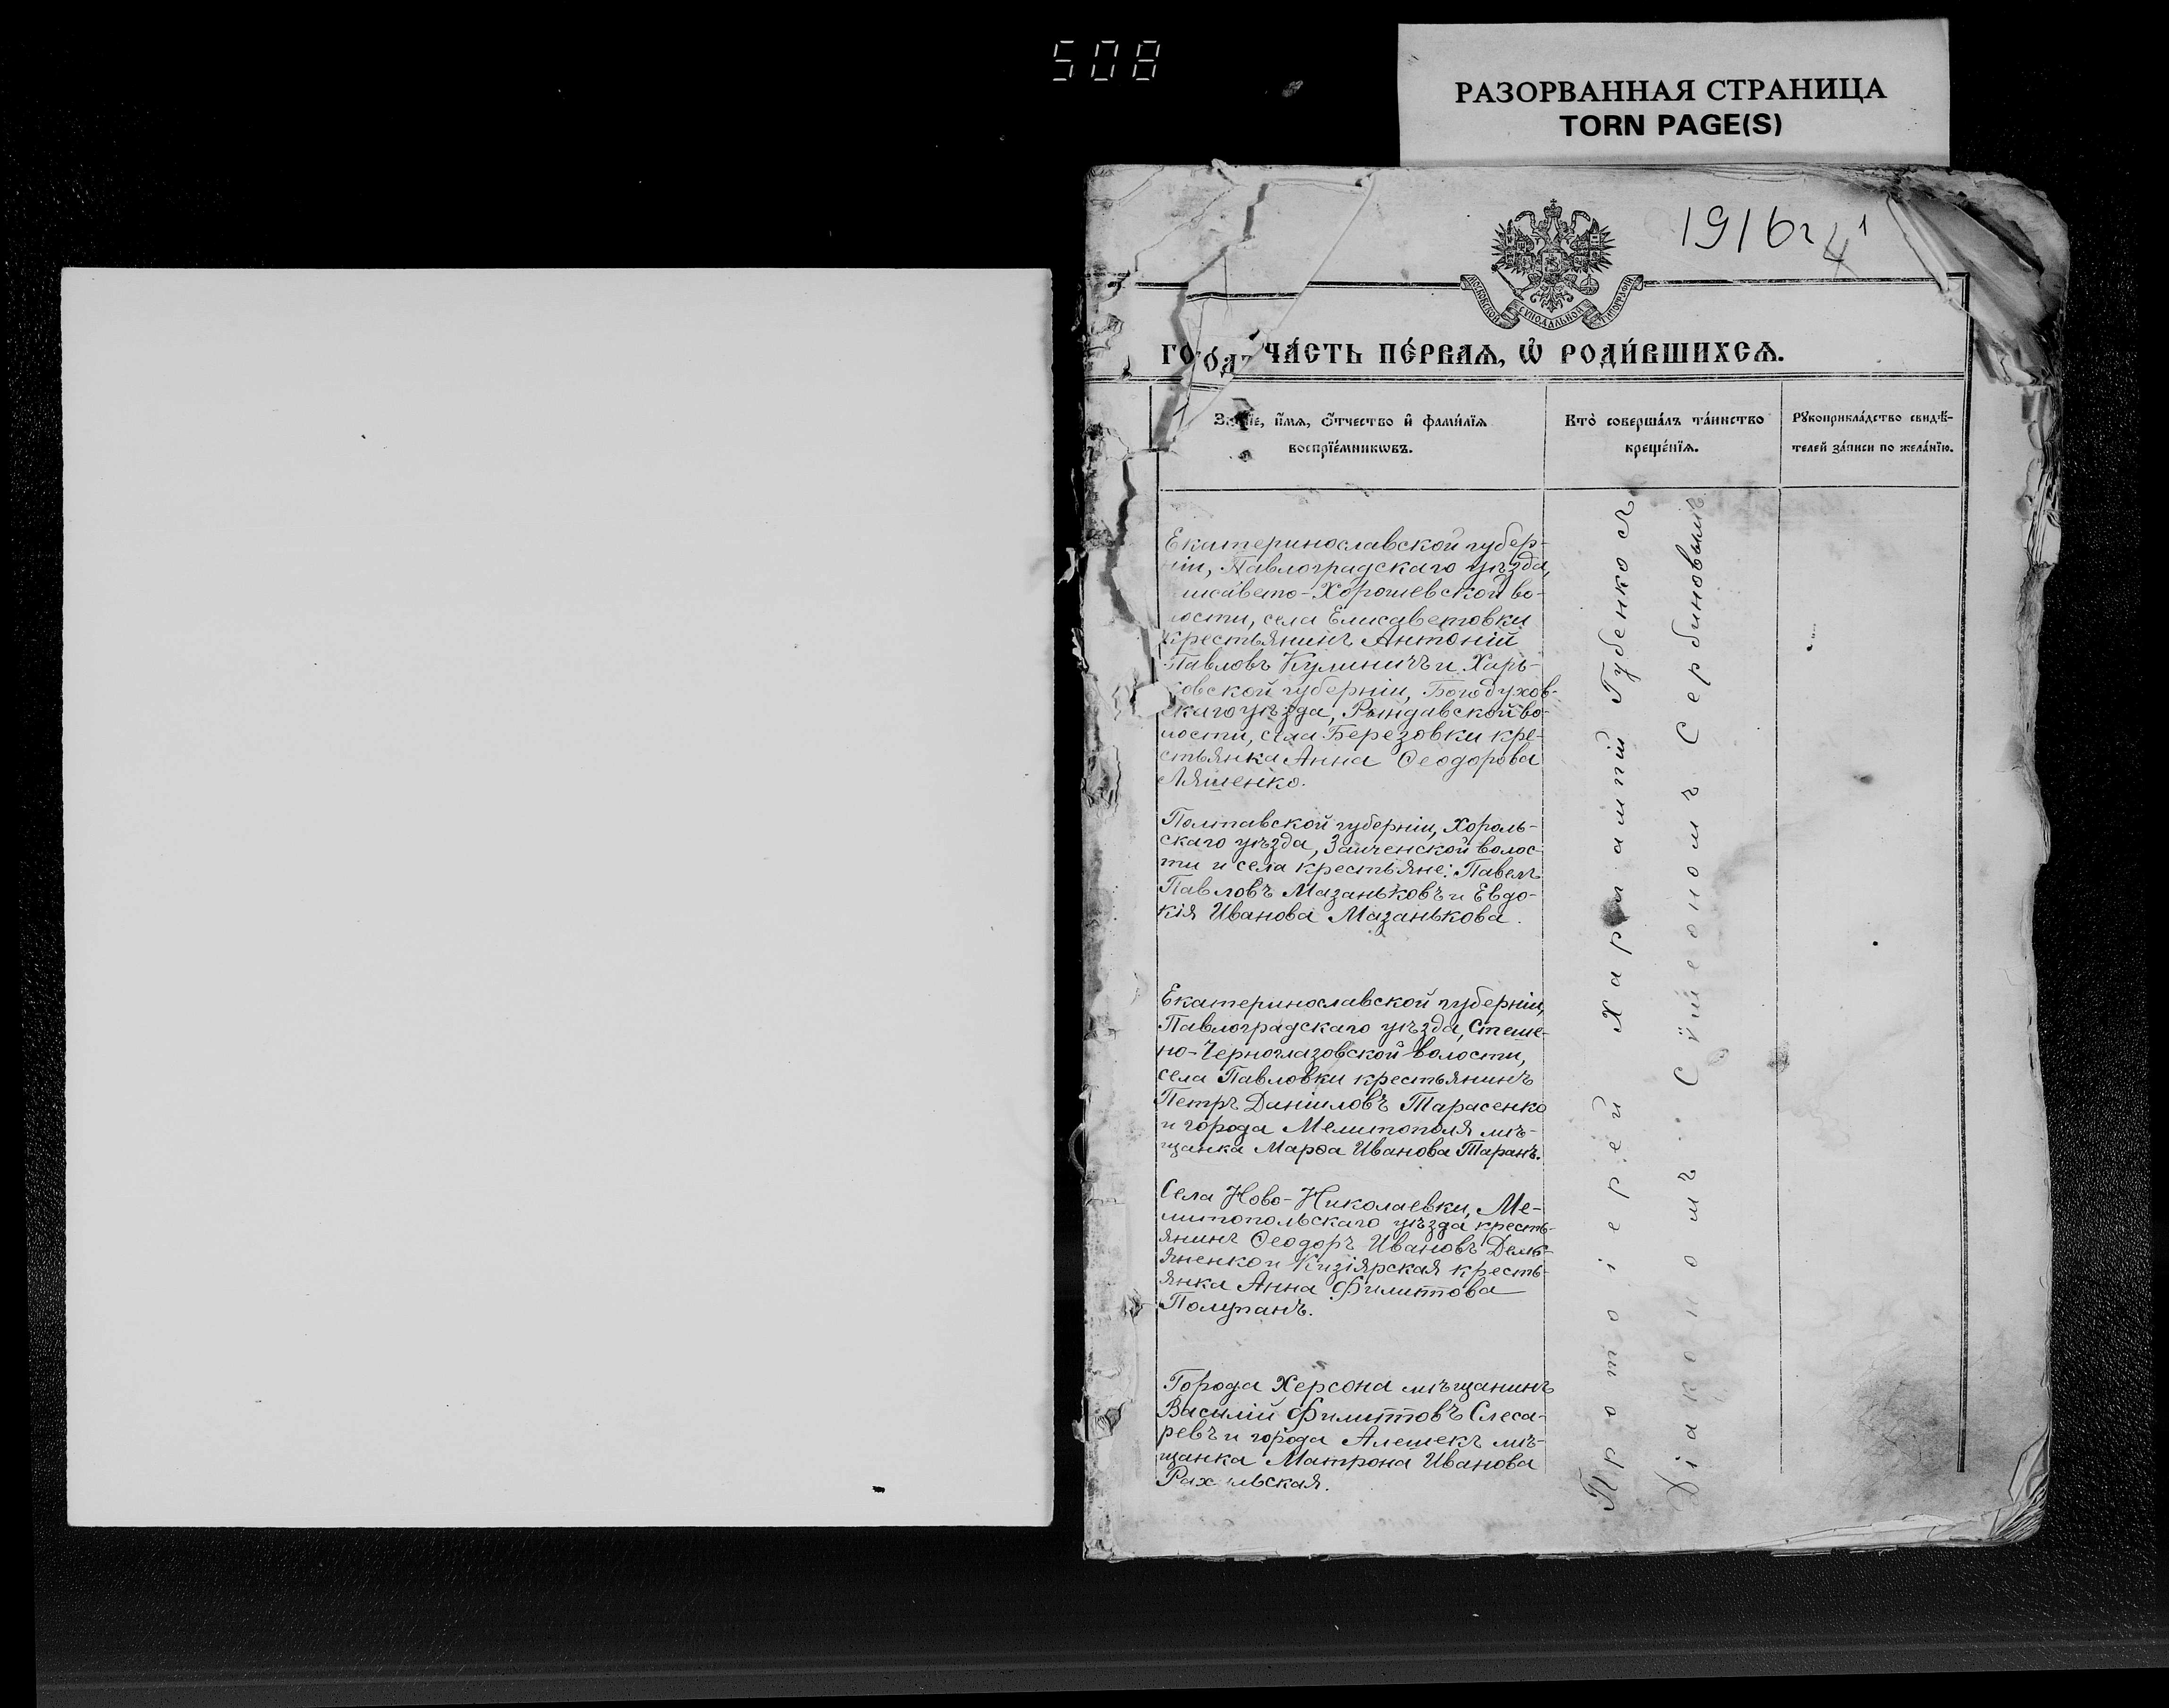 508
РАЗОРВАННАЯ СТРАНИЦА
TORN PAGE(S)
1916 г
МОСКОВСКОЙ СУНОДАЛЬНОЙ ТИПОГРАФІИ
ЧА́СТЬ ПЕ́РВАѦ, Ѡ҆ РОДИ́ВШИХСѦ.
и҆́мѧ, ѻ҆́тчество и҆ фами́лїѧ
воспрїе́мникѡвъ.
Кто̀ соверша́лъ та́инство
креще́нїѧ.
Рꙋкоприкла́дство свидѣ́-
телей за́писи по жела́нїю.
Екатеринославской губер-
ніи, Павлоградскаго уѣзда,
лисавето-Хорошевской во-
лости, села Елисаветовки
крестьянинъ Антоній
Павловъ Кулиничъ и Харь-
ковской губерніи, Богодухов-
скаго уѣзда, Рындавской во-
лости, села Березовки кре-
стьянка Анна Ѳеодорова
Ляшенко.
Полтавской губерніи, Хороль-
скаго уѣзда, Заиченской волос-
ти и села крестьяне: Павелъ
Павловъ Мазаньковъ и Евдо-
кія Иванова Мазанькова.
Екатеринославской губерніи,
Павлоградскаго уѣзда, Стеше-
но-Черноглазовской волости,
села Павловки крестьянинъ
Петръ Даніиловъ Тарасенко
и города Мелитополя мѣ-
щанка Марѳа Иванова Таранъ.
Села Ново-Николаевки, Ме-
литопольскаго уѣзда кресть-
янинъ Ѳеодоръ Ивановъ Демь-
яненко и Кизіярская кресть-
янка Анна Филиппова
Полупанъ.
Города Херсона мѣщанинъ
Василій Филипповъ Слеса-
ревъ и города Алешекъ мѣ-
щанка Матрона Иванова
Протоіерей Харлампій Губенко съ
Діакономъ Сѵмеономъ Сербиновымъ